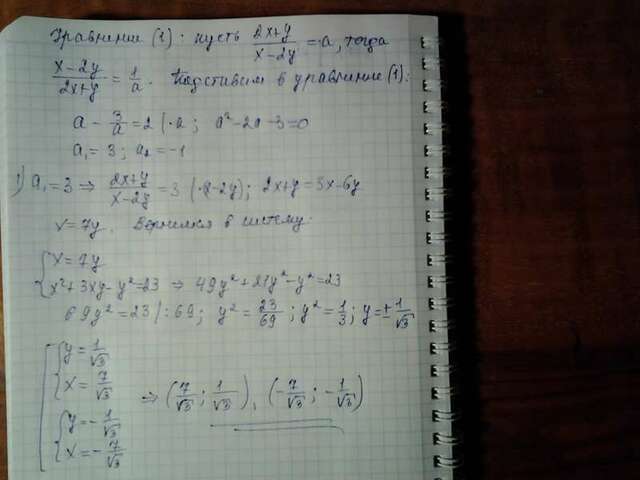 Уравнение (1): пусть (2x+y)/(x-2y) = a, тогда
(x-2y)/(2x+y) = 1/a. Подставим в уравнение (1):
a - 3/a = 2 |·a ; a² - 2a - 3 = 0
a₁ = 3 ; a₂ = -1
1) a₁ = 3 ⇒ (2x+y)/(x-2y) = 3 |·(x-2y) ; 2x+y = 3x-6y
x = 7y. Вернёмся в систему:
{ x = 7y
x² + 3xy - y² = 23 ⇒ 49y² + 21y² - y² = 23
69y² = 23 |:69 ; y² = 23/69 ; y² = 1/3 ; y = ± 1/√3
[ { y = 1/√3
x = 7/√3
⇒ (7/√3 ; 1/√3), (-7/√3 ; -1/√3)
{ y = -1/√3
x = -7/√3